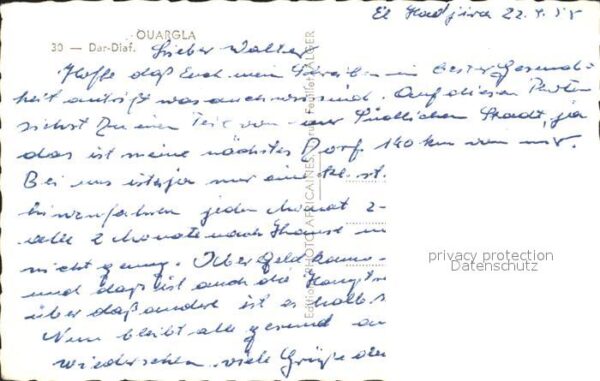 OUARGLA
30 — Dar-Diaf.
El Hadjira 22.4.55
Lieber Walter
Hoffe daß Euch mein Schreiben in bester Gesund-
heit antrift was auch wir sind. Auf diesen Karten
siehst Du einen Teil von der südlichen Stadt, ja
das ist meine nächstes Dorf 140 km von mir.
Bei uns ist ja nur eine kl. st.
hinzufahren jeden Monat 2-
alle 2 Monate nach Hause
nicht genug. Aber Geld kann
und daß ist auch die Haupts
über daß andere ist es halb s
Nun bleibt alle gesund
wiedersehen. viele Grüße
Editions PHOTO-AFRICAINES, ALGER
privacy protection
Datenschutz